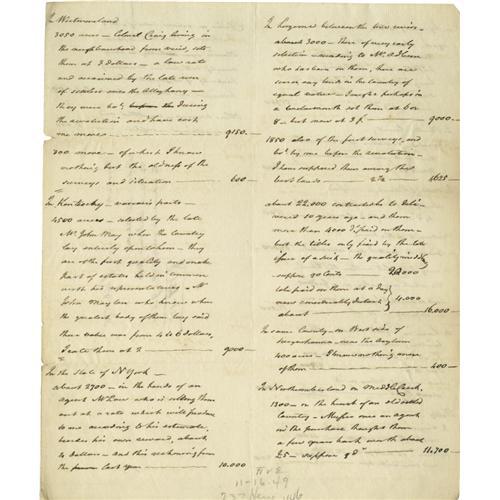 In Westmoreland
3050 acres - Colonel Craig living in
the neighbourhood from which, sets
them at 3 dollars - a low rate
and occasioned by the late war
of settlers over the Alleghany -
they were bot. before the During
the revolution and have cost
me more - 9150.-
300 more - of which I know
nothing but the oldness of the
surveys and situation - 600
In Kentucky - various parts -
4500 acres - selected by the late
Mr. John May when the Country
lay entirely open to him - they
are of the first quality and make
part of estates held in common
with his representatives - Mr
John May Low who knows where
the greatest body of them lay said
their value was from 4 to 6 dollars,
I rate them at 2 - 9000 -
In the State of N York -
about 2700 - in the hands of an
agent Mr Low who is selling them
out at a rate which will produce
to me according to his estimate,
besides his own reward, about
4 dollars - and this reckoning from
the last year - 10.000
In between the two rivers -
about 3000 - These of very early
selection - according to Mr
who has been on them, there are
scarce any lands in the Country of
equal value - perhaps in
a set them at 6 or
8 - but now at 3 p. - 9000 -
1850 also of the first surveys, and
bot. by me before the revolution -
I have supposed them among the
best lands - 4625 -
about 22,000 contractible to
10 years ago - and them
more than 4000 paid on them -
but the titles only paid by the late
- the quality
suppose 90 Cents 20,000
paid on them at a day
very considerably
about 4.000
16.000 -
In same County - on West side of
Susquehanna - near the Asylum
400 acres - I know nothing more
of them - 400 -
In Northumberland on Middle Creek,
1300 - in the heart of an old settled
Country - once an agent
in the purchase thought them
a few years back worth about
£5 - suppose 9 ds - 11.700 -
11-16-49